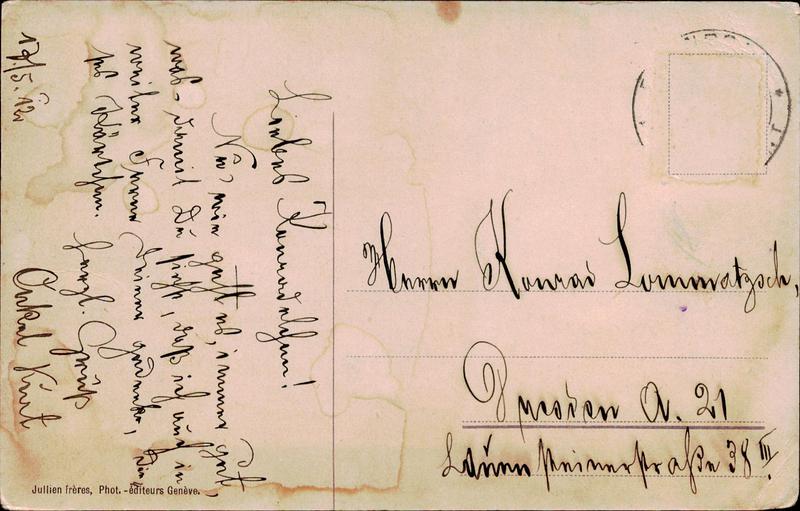 17./5. 12.
Liebes Konradchen!
Na, wie geht es, immer gut,
was. Damit Du siehst, daß ich auch in
weiter Ferne Deiner gedenke, diese
Kärtchen.
Herzl. Gruß
Onkel Kurt
Herrn Konrad Lommatzsch,
Dresden A. 21
Lauensteinerstraße 38 III.
Jullien frères, Phot.-éditeurs Genève.